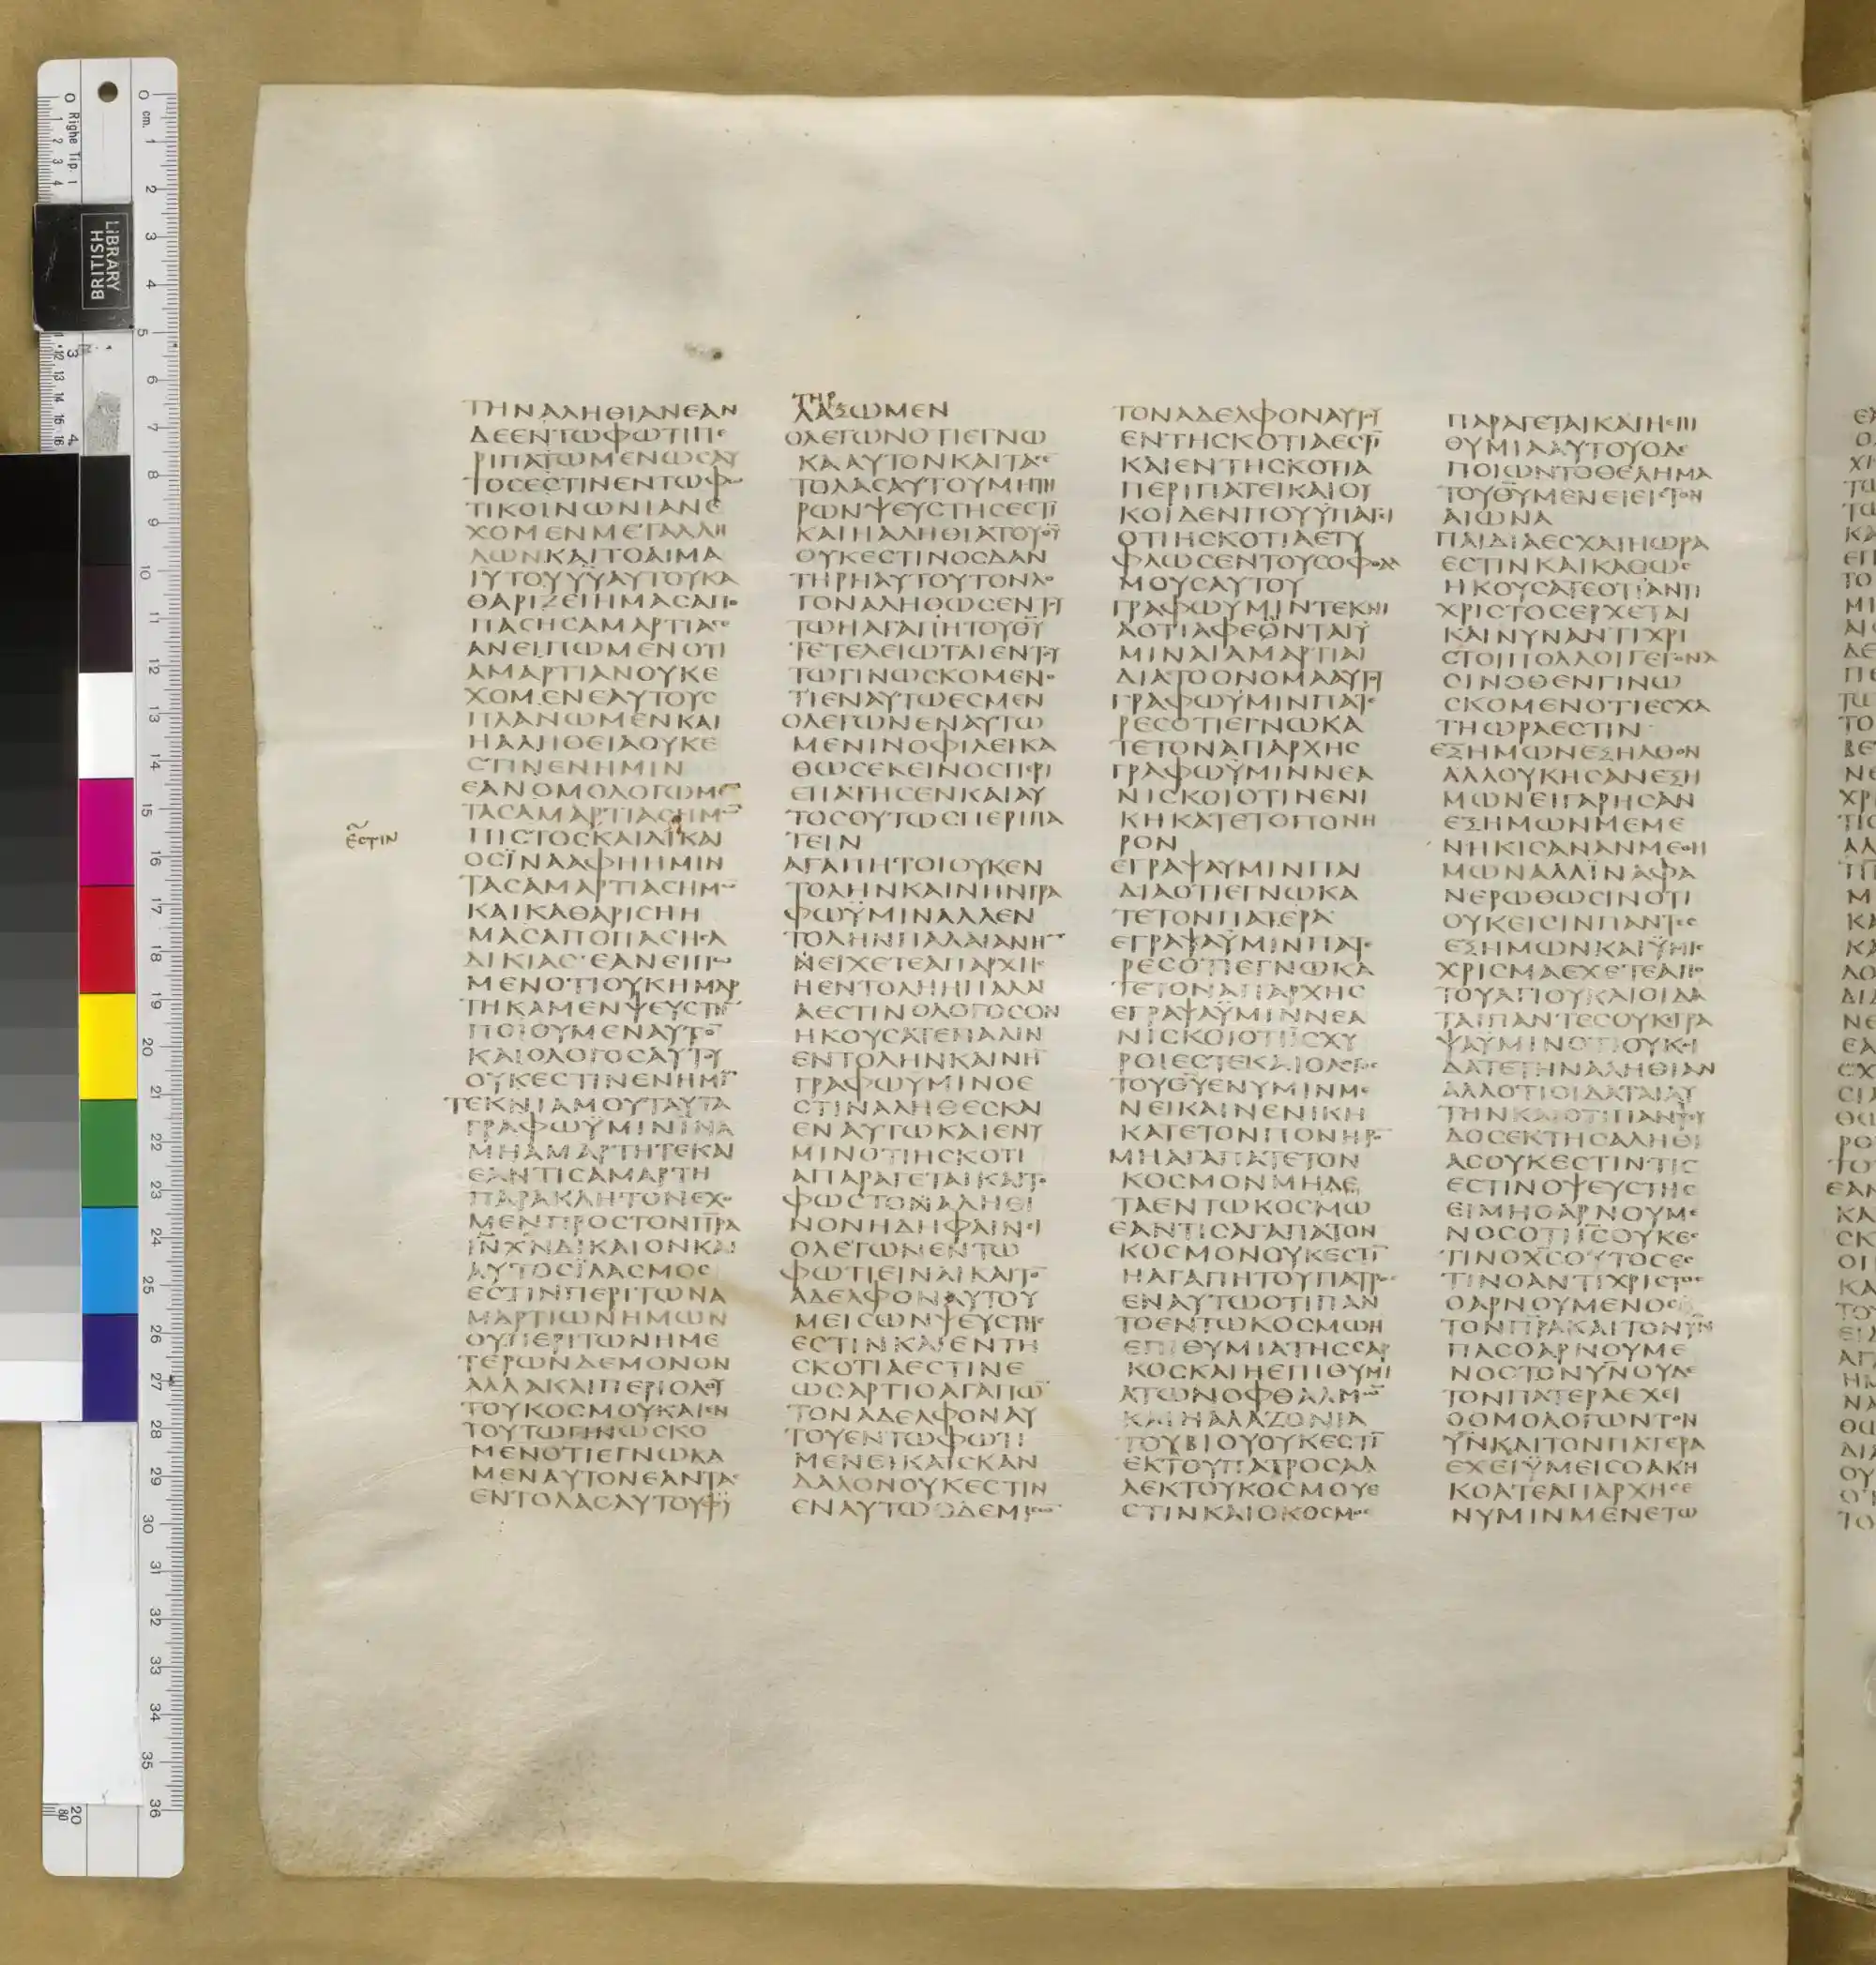 ΤΗΝΑΛΗΘΙΑΝΕΑΝ
ΔΕΕΝΤΩΦΩΤΙΠΕ
ΡΙΠΑΤΩΜΕΝΩϹΑΥ
ΤΟϹΕϹΤΙΝΕΝΤΩΦΩ
ΤΙΚΟΙΝΩΝΙΑΝΕ
ΧΟΜΕΝΜΕΤΑΛΛΗ
ΛΩΝΚΑΙΤΟΑΙΜΑ
ΙΥΤΟΥΥΥΑΥΤΟΥΚΑ
ΘΑΡΙΖΕΙΗΜΑϹΑΠΟ
ΠΑϹΗϹΑΜΑΡΤΙΑϹ
ΑΝΕΙΠΩΜΕΝΟΤΙ
ΑΜΑΡΤΙΑΝΟΥΚΕ
ΧΟΜΕΝΕΑΥΤΟΥϹ
ΠΛΑΝΩΜΕΝΚΑΙ
ΗΑΛΗΘΕΙΑΟΥΚΕ
ϹΤΙΝΕΝΗΜΙΝ
ΕΑΝΟΜΟΛΟΓΩΜΕ
ΤΑϹΑΜΑΡΤΙΑϹΗΜΩ
ΕϹΤΙΝ
ΠΙϹΤΟϹΚΑΙΔΙΚΑΙ
ΟϹΪΝΑΑΦΗΗΜΙΝ
ΤΑϹΑΜΑΡΤΙΑϹΗΜΩ
ΚΑΙΚΑΘΑΡΙϹΗΗ
ΜΑϹΑΠΟΠΑϹΗϹΑ
ΔΙΚΙΑϹΕΑΝΕΙΠΩ
ΜΕΝΟΤΙΟΥΚΗΜΑΡ
ΤΗΚΑΜΕΝΨΕΥϹΤΗ
ΠΟΙΟΥΜΕΝΑΥΤΟ
ΚΑΙΟΛΟΓΟϹΑΥΤΟΥ
ΟΥΚΕϹΤΙΝΕΝΗΜΙ
ΤΕΚΝΙΑΜΟΥΤΑΥΤΑ
ΓΡΑΦΩΫΜΙΝΪΝΑ
ΜΗΑΜΑΡΤΗΤΕΚΑΙ
ΕΑΝΤΙϹΑΜΑΡΤΗ
ΠΑΡΑΚΛΗΤΟΝΕΧΟ
ΜΕΝΠΡΟϹΤΟΝΠΡΑ
ΙΝΧΝΔΙΚΑΙΟΝΚΑΙ
ΑΥΤΟϹΪΛΑϹΜΟϹ
ΕϹΤΙΝΠΕΡΙΤΩΝΑ
ΜΑΡΤΙΩΝΗΜΩΝ
ΟΥΠΕΡΙΤΩΝΗΜΕ
ΤΕΡΩΝΔΕΜΟΝΟΝ
ΑΛΛΑΚΑΙΠΕΡΙΟΛΟΥ
ΤΟΥΚΟϹΜΟΥΚΑΙΕΝ
ΤΟΥΤΩΓΙΝΩϹΚΟ
ΜΕΝΟΤΙΕΓΝΩΚΑ
ΜΕΝΑΥΤΟΝΕΑΝΤΑϹ
ΕΝΤΟΛΑϹΑΥΤΟΥΦΥ
ΤΗΡ
ΛΑΞΩΜΕΝ
ΟΛΕΓΩΝΟΤΙΕΓΝΩ
ΚΑΑΥΤΟΝΚΑΙΤΑϹΕ
ΤΟΛΑϹΑΥΤΟΥΜΗΤΗ
ΡΩΝΨΕΥϹΤΗϹΕϹΤΙ
ΚΑΙΗΑΛΗΘΙΑΤΟΥΘΥ
ΟΥΚΕϹΤΙΝΟϹΔΑΝ
ΤΗΡΗΑΥΤΟΥΤΟΝΛΟ
ΓΟΝΑΛΗΘΩϹΕΝΤΟΥ
ΤΩΗΑΓΑΠΗΤΟΥΘΥ
ΤΕΤΕΛΕΙΩΤΑΙΕΝΤΟΥ
ΤΩΓΙΝΩϹΚΟΜΕΝΟ
ΤΙΕΝΑΥΤΩΕϹΜΕΝ
ΟΛΕΓΩΝΕΝΑΥΤΩ
ΜΕΝΙΝΟΦΙΛΕΙΚΑ
ΘΩϹΕΚΕΙΝΟϹΠΕΡΙ
ΕΠΑΤΗϹΕΝΚΑΙΑΥ
ΤΟϹΟΥΤΩϹΠΕΡΙΠΑ
ΤΕΙΝ
ΑΓΑΠΗΤΟΙΟΥΚΕΝ
ΤΟΛΗΝΚΑΙΝΗΝΓΡΑ
ΦΩΫΜΙΝΑΛΛΕΝ
ΤΟΛΗΝΠΑΛΑΙΑΝΗ
ΝΕΙΧΕΤΕΑΠΑΡΧΗϹ
ΗΕΝΤΟΛΗΗΠΑΛΑΙ
ΑΕϹΤΙΝΟΛΟΓΟϹΟΝ
ΗΚΟΥϹΑΤΕΠΑΛΙΝ
ΕΝΤΟΛΗΝΚΑΙΝΗ
ΓΡΑΦΩΥΜΙΝΟΕ
ϹΤΙΝΑΛΗΘΕϹΚΑΙ
ΕΝΑΥΤΩΚΑΙΕΝΥ
ΜΙΝΟΤΙΗϹΚΟΤΙ
ΑΠΑΡΑΓΕΤΑΙΚΑΙΤΟ
ΦΩϹΤΟΝΑΛΗΘΙ
ΝΟΝΗΔΗΦΑΙΝΕΙ
ΟΛΕΓΩΝΕΝΤΩ
ΦΩΤΙΕΙΝΑΙΚΑΙΤΟ
ΑΔΕΛΦΟΝΑΥΤΟΥ
ΜΕΙϹΩΝΨΕΥϹΤΗϹ
ΕϹΤΙΝΚΑΙΕΝΤΗ
ϹΚΟΤΙΑΕϹΤΙΝΕ
ΩϹΑΡΤΙΟΑΓΑΠΩ
ΤΟΝΑΔΕΛΦΟΝΑΥ
ΤΟΥΕΝΤΩΦΩΤΙ
ΜΕΝΕΙΚΑΙϹΚΑΝ
ΔΑΛΟΝΟΥΚΕϹΤΙΝ
ΕΝΑΥΤΩΟΔΕΜΙϹΩ
ΤΟΝΑΔΕΛΦΟΝΑΥΤΟΥ
ΕΝΤΗϹΚΟΤΙΑΕϹΤΙ
ΚΑΙΕΝΤΗϹΚΟΤΙΑ
ΠΕΡΙΠΑΤΕΙΚΑΙΟΥ
ΚΟΙΔΕΝΠΟΥΫΠΑΓΕΙ
ΟΤΙΗϹΚΟΤΙΑΕΤΥ
ΦΛΩϹΕΝΤΟΥϹΟΦΘΑΛ
ΜΟΥϹΑΥΤΟΥ
ΓΡΑΦΩΥΜΙΝΤΕΚΝΙ
ΑΟΤΙΑΦΕΩΝΤΑΙΫ
ΜΙΝΑΙΑΜΑΡΤΙΑΙ
ΔΙΑΤΟΟΝΟΜΑΑΥΤΟΥ
ΓΡΑΦΩΥΜΙΝΠΑΤΕ
ΡΕϹΟΤΙΕΓΝΩΚΑ
ΤΕΤΟΝΑΠΑΡΧΗϹ
ΓΡΑΦΩΫΜΙΝΝΕΑ
ΝΙϹΚΟΙΟΤΙΝΕΝΙ
ΚΗΚΑΤΕΤΟΠΟΝΗ
ΡΟΝ
ΕΓΡΑΨΑΥΜΙΝΠΑΙ
ΔΙΑΟΤΙΕΓΝΩΚΑ
ΤΕΤΟΝΠΑΤΕΡΑ
ΕΓΡΑΨΑΫΜΙΝΠΑΤΕ
ΡΕϹΟΤΙΕΓΝΩΚΑ
ΤΕΤΟΝΑΠΑΡΧΗϹ
ΕΓΡΑΨΑΫΜΙΝΝΕΑ
ΝΙϹΚΟΙΟΤΙΪϹΧΥ
ΡΟΙΕϹΤΕΚΑΙΟΛΟΓΟϹ
ΤΟΥΘΥΕΝΥΜΙΝΜΕ
ΝΕΙΚΑΙΝΕΝΙΚΗ
ΚΑΤΕΤΟΝΠΟΝΗΡΟ
ΜΗΑΓΑΠΑΤΕΤΟΝ
ΚΟϹΜΟΝΜΗΔΕ
ΤΑΕΝΤΩΚΟϹΜΩ
ΕΑΝΤΙϹΑΓΑΠΑΤΟΝ
ΚΟϹΜΟΝΟΥΚΕϹΤΙ
ΗΑΓΑΠΗΤΟΥΠΑΤΡΟϹ
ΕΝΑΥΤΩΟΤΙΠΑΝ
ΤΟΕΝΤΩΚΟϹΜΩΗ
ΕΠΙΘΥΜΙΑΤΗϹϹΑΡ
ΚΟϹΚΑΙΗΕΠΙΘΥΜΙ
ΑΤΩΝΟΦΘΑΛΜΩ
ΚΑΙΗΑΛΑΖΟΝΙΑ
ΤΟΥΒΙΟΥΟΥΚΕϹΤΙ
ΕΚΤΟΥΠΑΤΡΟϹΑΛ
ΛΕΚΤΟΥΚΟϹΜΟΥΕ
ϹΤΙΝΚΑΙΟΚΟϹΜΟϹ
ΠΑΡΑΓΕΤΑΙΚΑΙΗΕΠΙ
ΘΥΜΙΑΑΥΤΟΥΟΔΕ
ΠΟΙΩΝΤΟΘΕΛΗΜΑ
ΤΟΥΘΥΜΕΝΕΙΕΙϹΤΟΝ
ΑΙΩΝΑ
ΠΑΙΔΙΑΕϹΧΑΤΗΩΡΑ
ΕϹΤΙΝΚΑΙΚΑΘΩϹ
ΗΚΟΥϹΑΤΕΟΤΙΑΝΤΙ
ΧΡΙϹΤΟϹΕΡΧΕΤΑΙ
ΚΑΙΝΥΝΑΝΤΙΧΡΙ
ϹΤΟΙΠΟΛΛΟΙΓΕΓΟΝΑ
ϹΙΝΟΘΕΝΓΙΝΩ
ϹΚΟΜΕΝΟΤΙΕϹΧΑ
ΤΗΩΡΑΕϹΤΙΝ
ΕΞΗΜΩΝΕΞΗΛΘΟΝ
ΑΛΛΟΥΚΗϹΑΝΕΞΗ
ΜΩΝΕΙΓΑΡΗϹΑΝ
ΕΞΗΜΩΝΜΕΜΕ
ΝΗΚΙϹΑΝΑΝΜΕΘΗ
ΜΩΝΑΛΛΪΝΑΦΑ
ΝΕΡΩΘΩϹΙΝΟΤΙ
ΟΥΚΕΙϹΙΝΠΑΝΤΕϹ
ΕΞΗΜΩΝΚΑΙΫΜΙϹ
ΧΡΙϹΜΑΕΧΕΤΕΑΠΟ
ΤΟΥΑΓΙΟΥΚΑΙΟΙΔΑ
ΤΑΙΠΑΝΤΕϹΟΥΚΕΓΡΑ
ΨΑΥΜΙΝΟΤΙΟΥΚΟΙ
ΔΑΤΕΤΗΝΑΛΗΘΙΑΝ
ΑΛΛΟΤΙΟΙΔΑΤΑΙΑΥ
ΤΗΝΚΑΙΟΤΙΠΑΝΨΕΥ
ΔΟϹΕΚΤΗϹΑΛΗΘΙ
ΑϹΟΥΚΕϹΤΙΝΤΙϹ
ΕϹΤΙΝΟΨΕΥϹΤΗϹ
ΕΙΜΗΟΑΡΝΟΥΜΕ
ΝΟϹΟΤΙΙϹΟΥΚΕϹ
ΤΙΝΟΧϹΟΥΤΟϹΕϹ
ΤΙΝΟΑΝΤΙΧΡΙϹΤΟϹ
ΟΑΡΝΟΥΜΕΝΟϹ
ΤΟΝΠΡΑΚΑΙΤΟΝΥΝ
ΠΑϹΟΑΡΝΟΥΜΕ
ΝΟϹΤΟΝΥΝΟΥΔΕ
ΤΟΝΠΑΤΕΡΑΕΧΕΙ
ΟΟΜΟΛΟΓΩΝΤΟΝ
ΥΝΚΑΙΤΟΝΠΑΤΕΡΑ
ΕΧΕΙΫΜΕΙϹΟΑΚΗ
ΚΟΑΤΕΑΠΑΡΧΗϹΕ
ΝΥΜΙΝΜΕΝΕΤΩ